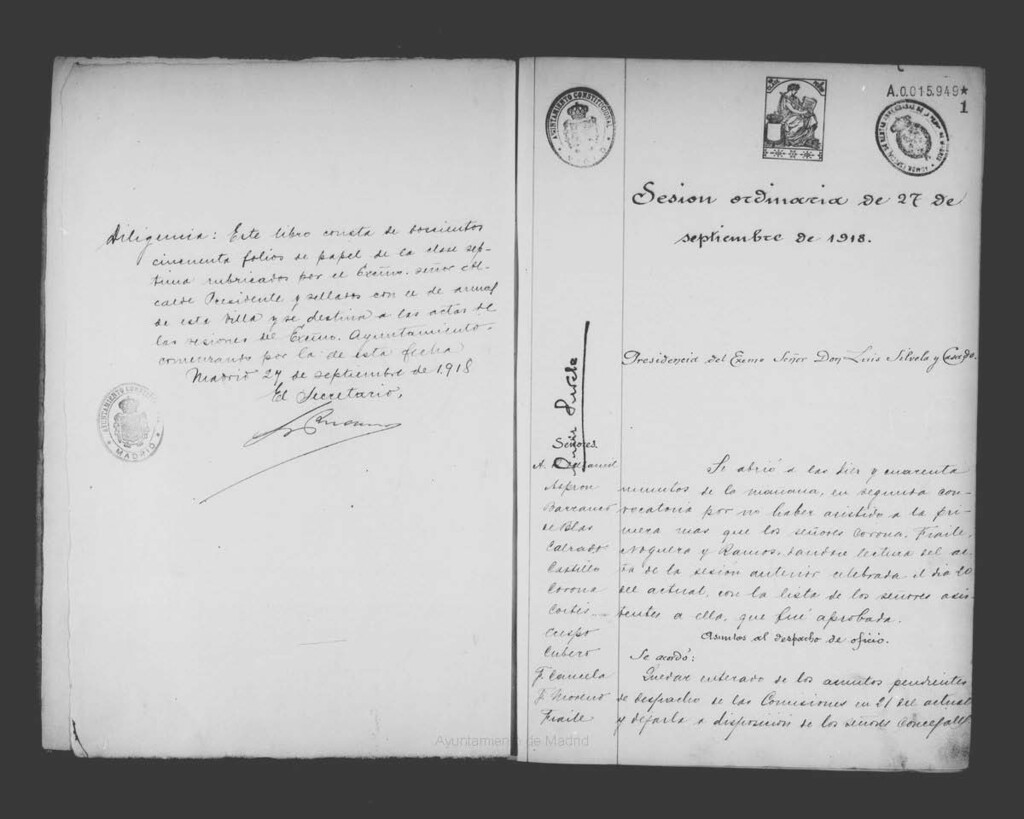 Diligencia: Este libro consta de doscientos
cincuenta folios de papel de la clase sép-
tima rubricados por el Excmo. señor Al-
calde Presidente y sellados con el de armas
de esta Villa y se destina a las actas de
las sesiones del Excmo. Ayuntamiento.
comenzando por la de esta fecha
Madrid 27 de septiembre de 1918
El Secretario,
AYUNTAMIENTO CONSTITUCIONAL
MADRID
AYUNTAMIENTO CONSTITUCIONAL
MADRID
A.0.015.949*
1
Sesion ordinaria de 27 de
septiembre de 1918.
Presidencia del Excmo Señor Don Luis Silvela y Casado.
Señores.
Aspron
Barranco
de Blas
Calzado
Castilla
Corona
Cortés
Crespo
Cubero
F. Cancela
F. Moreno
Fraile
Se abrió a las diez y cuarenta
minutos de la mañana, en segunda con-
vocatoria por no haber asistido a la pri-
mera mas que los señores Corona, Fraile,
Noguera y Ramos, dandose lectura del ac-
ta de la sesión anterior celebrada el dia 20
del actual, con la lista de los señores asis-
tentes a ella, que fué aprobada.
Asuntos al despacho de oficio.
Se acordó:
Quedar enterado de los asuntos pendientes
de despacho de las Comisiones en 21 del actual
y dejarla a disposición de los señores Concejales
Ayuntamiento de Madrid